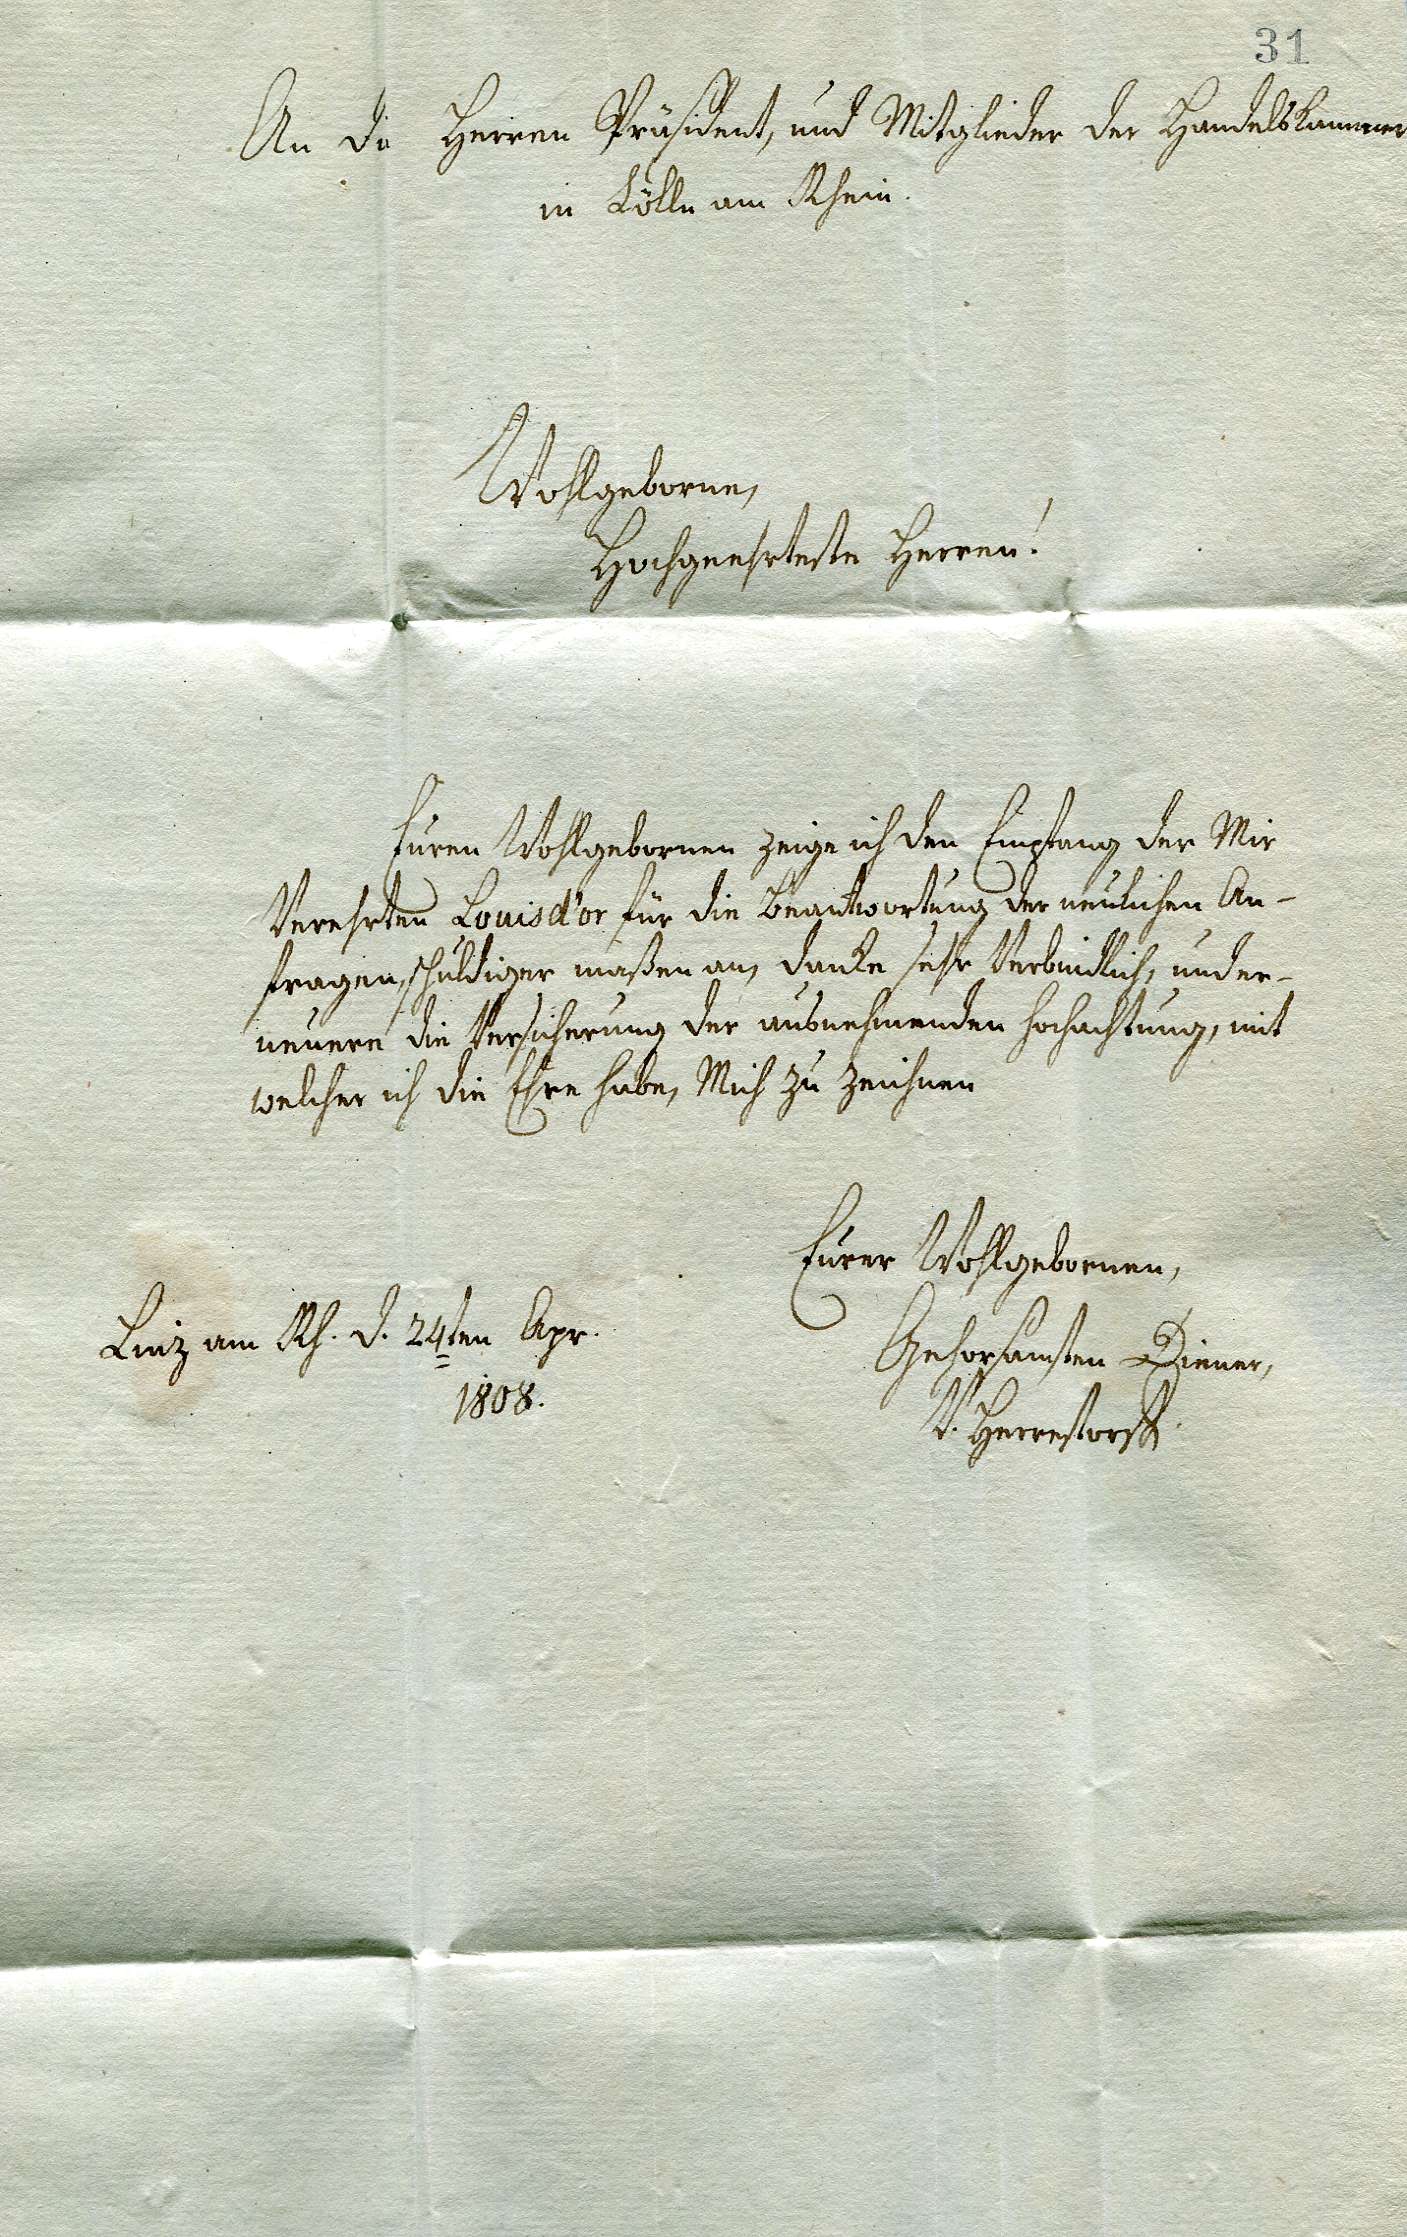 31
An die Herren Präsident, und Mitglieder der Handelskammer
in Cölln am Rhein.
Wohlgeborne,
Hochgeehrteste Herren!
Euren Wohlgebornen zeige ich den Empfang der Mir
Verehrten Louisd'or für die Beantwortung der neulichen An-
fragen, schuldiger maßen an, danke sehr Verbindlich, und er-
neuere die Versicherung der ausnehmenden hochachtung, mit
welcher ich die Ehre habe, Mich zu zeichnen
Eurer Wohlgebornen,
Linz am Rh. d. 24ten Apr.
1808.
Gehorsamsten Diener,
V. Herrestorff.